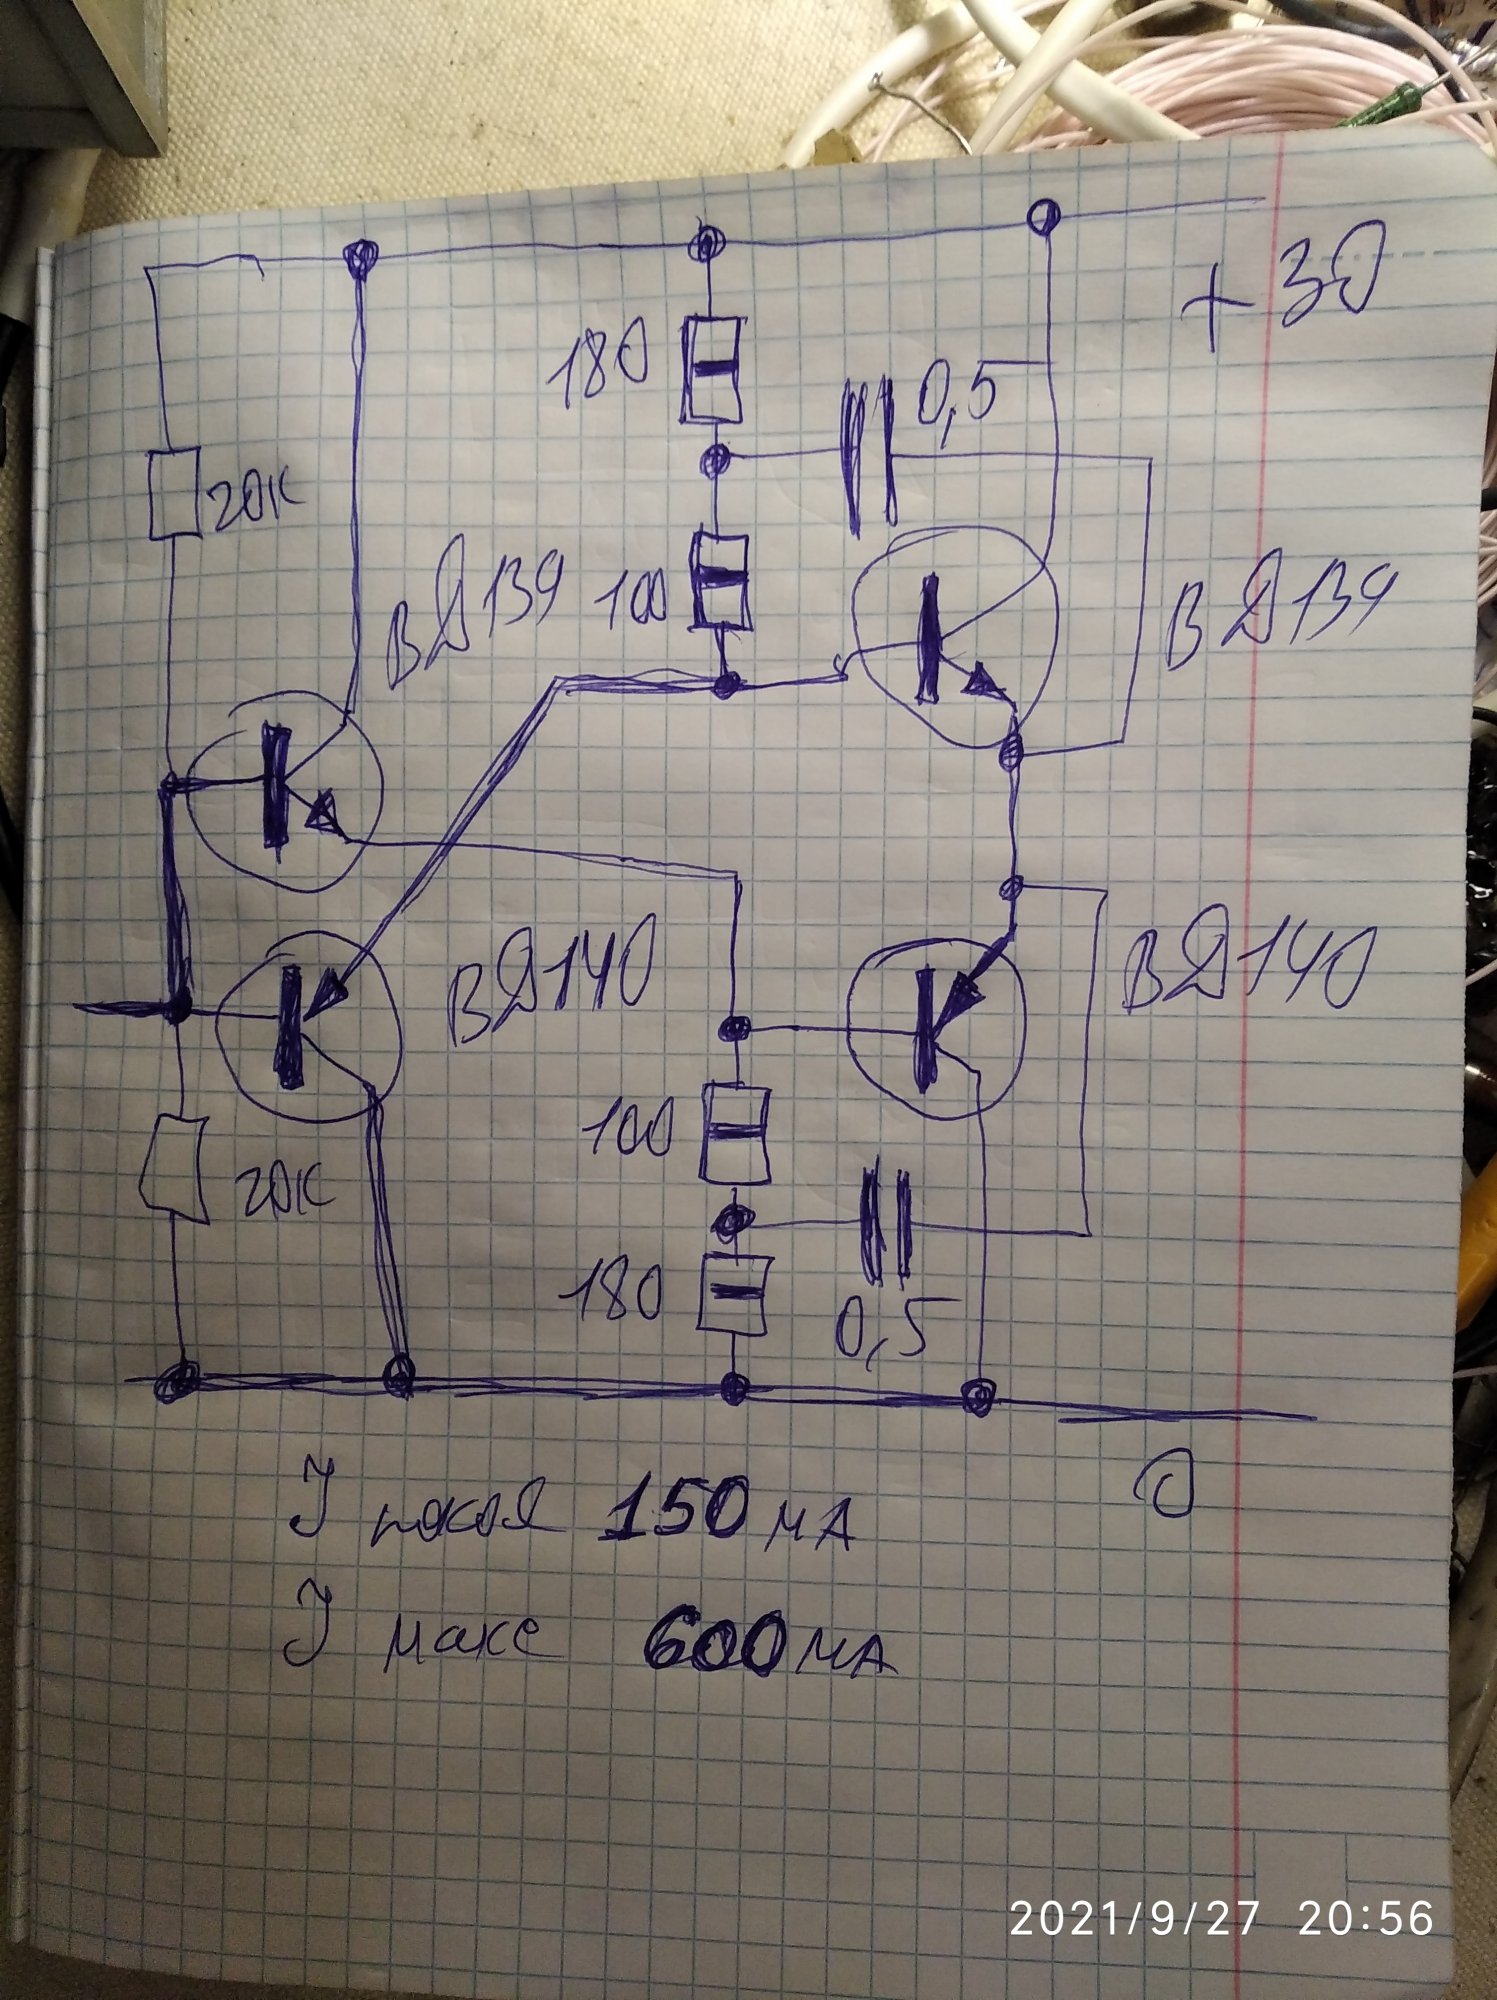 +30
180
0,5
20к
ВД139
100
ВД139
ВД140
ВД140
100
20к
180
0,5
0
I покоя 150 мА
I макс 600 мА
2021/9/27 20:56